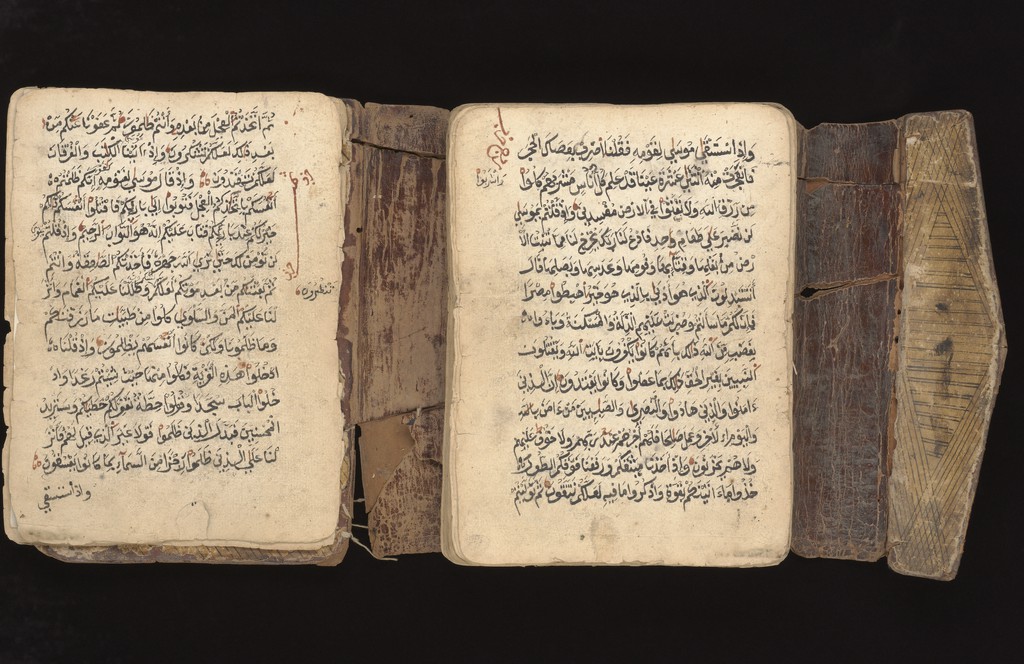 ثم اتخذتم العجل من بعده وأنتم ظلمون ثم عفونا عنكم من
بعد ذلك لعلكم تشكرون وإذ ءاتينا الكتب والفرقان
لعلكم تهتدون وإذ قال موسى لقومه إنكم ظلمتم
أنفسكم باتخاذكم العجل فتوبوا إلى بارئكم فاقتلوا أنفسكم ذلكم
خير لكم عند بارئكم فتاب عليكم إنه هو التواب الرحيم وإذ قلتم
لن نومن لك حتى نرى الله جهرة فأخذتكم الصعقة وأنتم
تنظرون
ثم بعثنكم من بعد موتكم لعلكم وظللنا عليكم الغمام وأنز
لنا عليكم المن والسلوى كلوا من طيبات ما رزقنكم
وما ظلمونا ولكن كانوا أنفسهم يظلمون وإذ قلنا
ادخلوا هذه القرية فكلوا منها حيث شئتم رغدا واد
خلوا الباب سجدا وقولوا حطة نغفر لكم خطيكم وسنزيد
المحسنين فبدل الذين ظلموا قولا غير الذي قيل لهم فأنز
لنا على الذين ظلموا رجزا من السماء بما كانوا يفسقون
وإذ استسقى
وإذ استسقى موسى لقومه فقلنا اضرب بعصاك الحجر
فانفجرت منه اثنتا عشرة عينا قد علم كل أناس مشربهم كلوا
واشربوا
من رزق الله ولا تعثوا في الارض مفسدين وإذ قلتم يموسى
لن نصبر على طعام واحد فادع لنا ربك يخرج لنا مما تنبت الا
رض من بقلها وقثائها وفومها وعدسها وبصلها قال
أتستبدلون الذي هو أدنى بالذي هو خير اهبطوا مصرا
فإن لكم ما سألتم وضربت عليهم الذلة والمسكنة وباءو
بغضب من الله ذلك بأنهم كانوا يكفرون بايت الله ويقتلون
النبيين بغير الحق ذلك بما عصوا وكانوا يعتدون إن الذين
ءامنوا والذين هادوا والنصرى والصابين من ءامن بالله
واليوم الاخر وعمل صلحا فلهم أجرهم عند ربهم ولا خوف عليهم
ولا هم يحزنون وإذ أخذنا ميثقكم ورفعنا فوقكم الطور
خذوا ما ءاتينكم بقوة واذكروا ما فيه لعلكم تتقون ثم توليتم